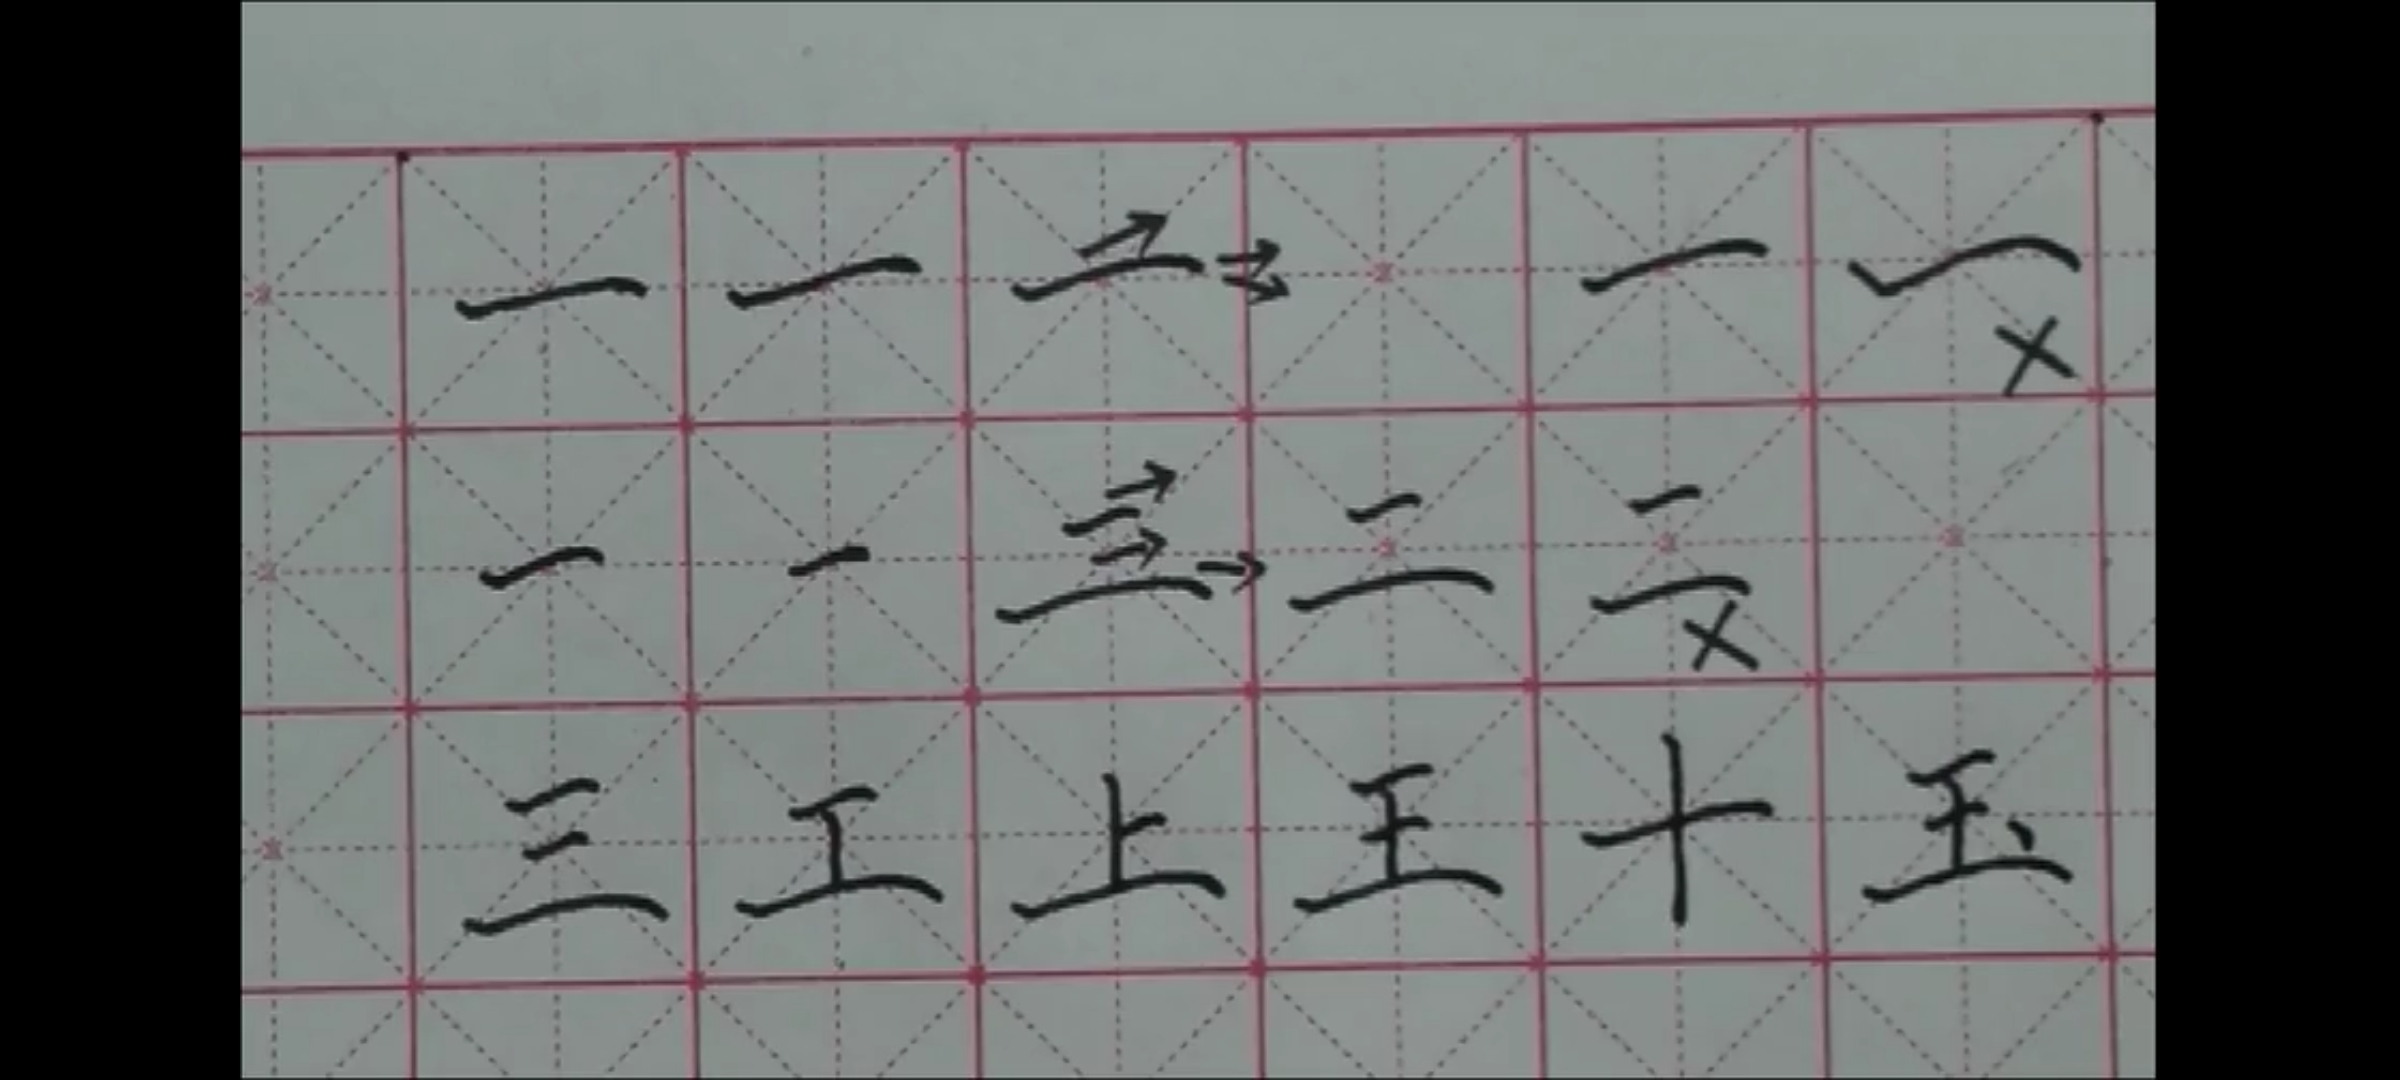 一 一 一 一 一
一 一 二 二 二
三 工 上 王 十 玉